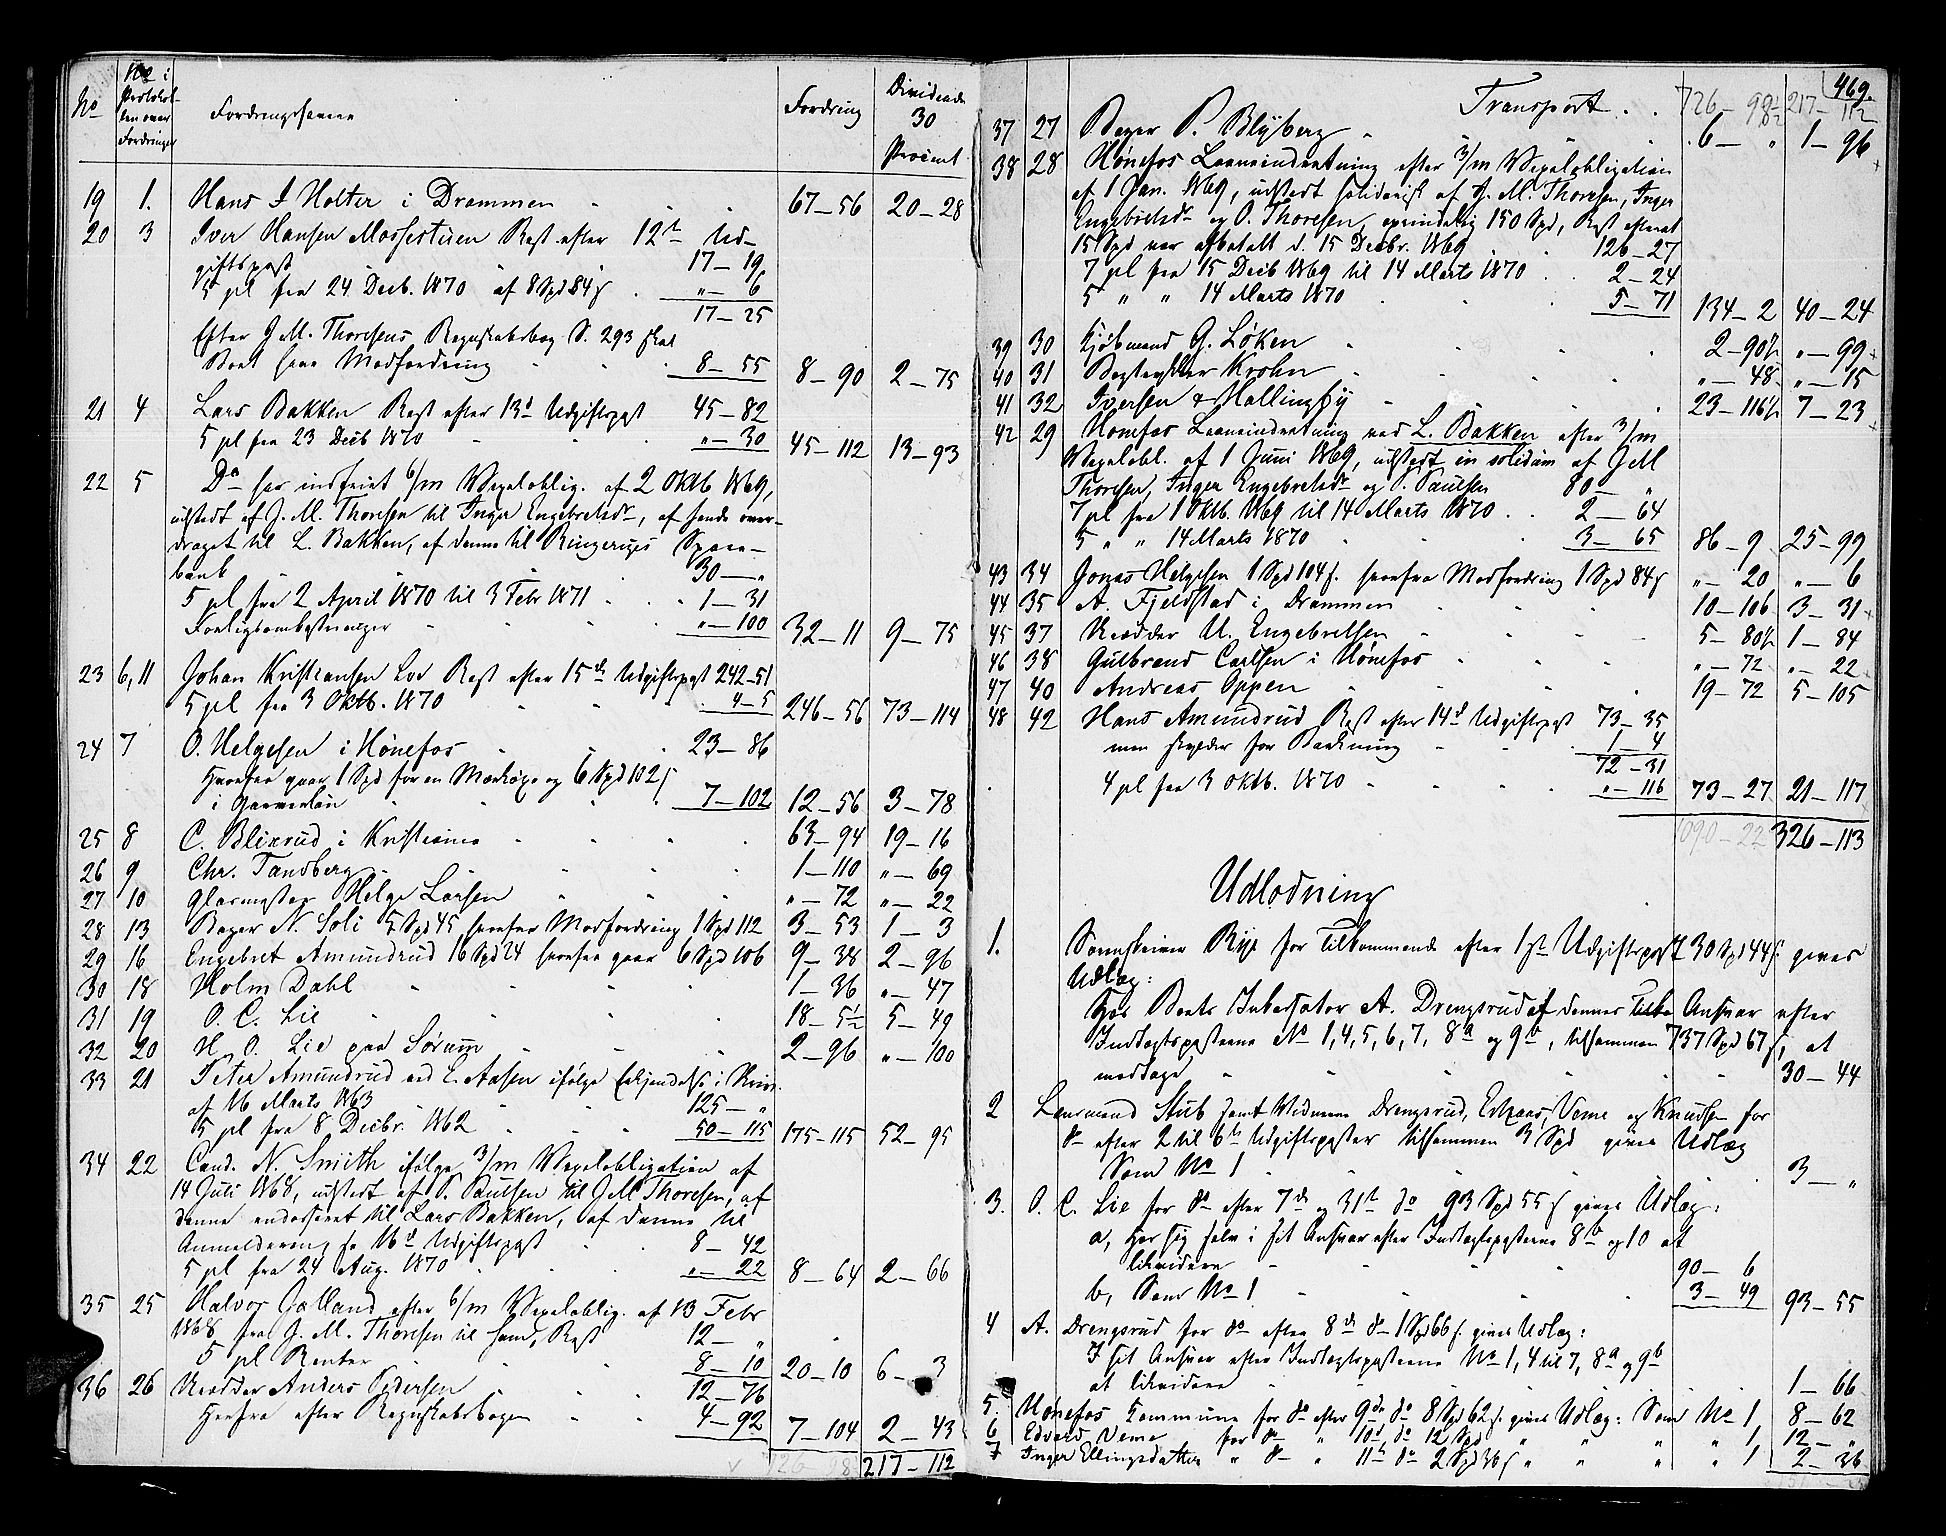 No
No i Protokollen over Fordringer
Fordringshavere
Fordring
Dividende 30 Procent
19 1. Hans J Holter i Drammen 67–56 20–28
20 3 Iver Hansen Mossestuen Rest efter 12te Ud-
giftspost 17–19
5 pCt fra 24 Decb. 1870 af 8 Spd 84 s „– 6
17–25
Efter J. M. Thoresens Regnskabsbog S. 293 skal
Boet have Modfordring 8–55 8–90 2–75
21 4 Lars Bakken Rest efter 13d Udgiftspost 45–82
5 pCt fra 23 Decb 1870 „–30 45–112 13–93
22 5 Do har indfriet 6/m Vexeloblig. af 2 Oktb 1869,
udstedt af J. M. Thoresen til Inger Engebretsdr, af hende over-
draget til L. Bakken, af denne til Ringeriges Spare-
bank 30–„
5 pCt fra 2 April 1870 til 3 Febr 1871 1–31
Forligsomkostninger „–100 32–11 9–75
23 6,11 Johan Kristiansen Lov Rest efter 15de Udgiftspost 242–51
5 pCt fra 3 Oktb. 1870 4–5 246–56 73–114
24 7 O. Helgesen i Hønefos 23–86
Herfra gaar 1 Spd for en og 6 Spd 102 s
i Garverløn 7–102 12–56 3–78
25 8 C. Blixrud i Kristiania 63–94 19–16
26 9 Chr. Tandberg 1–110 „–69
27 10 Glasmester Helge Larsen „–72 „–22
28 13 Bager N. Soli 5 Spd 45 herfra Modfordring 1 Spd 112 3–53 1–3
29 16 Engebret Amundrud 16 Spd 24 herfra gaar 6 Spd 106 9–38 2–96
30 18 Holm Dahl 1–36 „–47
31 19 O. C. Lie 18–5½ 5–49
32 20 H. O. Lie paa Sørum 2–96 „–100
33 21 Peter Amundrud ved L. Aasen ifølge Erkjendelse i Skive.
af 16 Marts 1863 125–„
5 pCt fra 8 Decbr. 1862 50–115 175–115 52–95
34 22 Cand. N. Smith ifølge 3/m Vexelobligation af
14 Juli 1868, udstedt af P. Paulsen til J. M. Thoresen, af
denne endosseret til Lars Bakken, af denne til
Anmelderen, se 16d Udgiftspost 8–42
5 pCt fra 24 Aug. 1870 „–22 8–64 2–66
35 25 Halvor Galland efter 6/m Vexeloblig. af 13 Febr
1868 fra J. M. Thoresen til ham, Rest 12–„
5 pCt Renter 8–10 20–10 6–3
36 26 Skrædder Anders Pedersen 12–76
Herfra efter Regnskabsbogen 4–92 7–104 2–43
726–98 217–112
469.
Transport 726–98½ 217–112
37 27 Bager P. Blyberg 6–„ 1–96
38 28 Hønefos Laaneindretning efter 3/m Vexelobligation
af 1 Jan. 1869, udstedt solidarisk af J. M. Thoresen, Inger
Engebretsdr og O. Thoresen, oprindelig 150 Spd, Rest efterat
15 Spd var afbetalt d. 15 Decbr. 1869 126–27
7 pCt fra 15 Decb 1869 til 14 Marts 1870 2–24
5 „ „ 14 Marts 1870 5–71 134–2 40–24
39 30 Kjøbmand G. Løken 2–90½ „–99
40 31 Bogtrykker Krohn „–48 „–15
41 32 Iversen & Hallingby 23–116½ 7–23
42 29 Hønefos Laaneindretning ved L. Bakken efter 3/m
Vexelobl. af 1 Juni 1869, udstedt in solidum af J M
Thoresen, Inger Engebretsdr og P. Paulsen 80–„
7 pCt fra 1 Oktb. 1869 til 14 Marts 1870 2–64
5 „ „ 14 Marts 1870 3–65 86–9 25–99
43 34 Jonas Helgesen 1 Spd 104 s. herfra Modfordring 1 Spd 84 s „–20 „–6
44 35 A. Fjeldstad i Drammen 10–106 3–31
45 37 Skrædder U. Engebretsen 5–80½ 1–84
46 38 Gulbrand Carlsen i Hønefos „–72 „–22
47 40 Andreas Oppen 19–72 5–105
48 42 Hans Amundrud Rest efter 14d Udgiftspost 73–35
men skylder for Barkning 1–4
72–31
4 pCt fra 3 Oktb. 1870 „–116 73–27 21–117
1090–22 326–113
Udlodning
1. Sorenskriver Rye for Tilkommende efter 1ste Udgiftspost 30 Spd 44 s. gives
Udlæg:
Hos Boets Inkassator A. Drengsrud af dennes Ansvar efter
Indtægtsposterne No 1, 4, 5, 6, 7, 8a og 9b, tilsammen 737 Spd 67 s, at
modtage 30–44
2 Lensmand Stub samt Vidnerne Drengsrud, Veme og Knudsen for
do efter 2 til 6te Udgiftsposter tilsammen 3 Spd gives Udlæg
Som No 1 3–„
3. O. C. Lie for do efter 7de og 31te do 93 Spd 55 s gives Udlæg:
a, Hos sig selv i sit Ansvar efter Indtægtsposterne 8b og 10 at
likvidere 90–6
b, Som No 1 3–49 93–55
4 A. Drengsrud for do efter 8de do 1 Spd 66 s. gives Udlæg:
I sit Ansvar efter Indtægtsposterne No 1, 4 til 7, 8a og 9b
at likvidere 1–66
5. Hønefos Kommune for do efter 9de do 8 Spd 62 s. gives Udlæg: Som No 1 8–62
6 Edvard Veme for do „ 10d do 12 Spd „ „ „ „ 1 12–„
7 Inger Ellingsdatter „ do „ 11te do 2 Spd 36 s „ „ „ „ 1 2–36